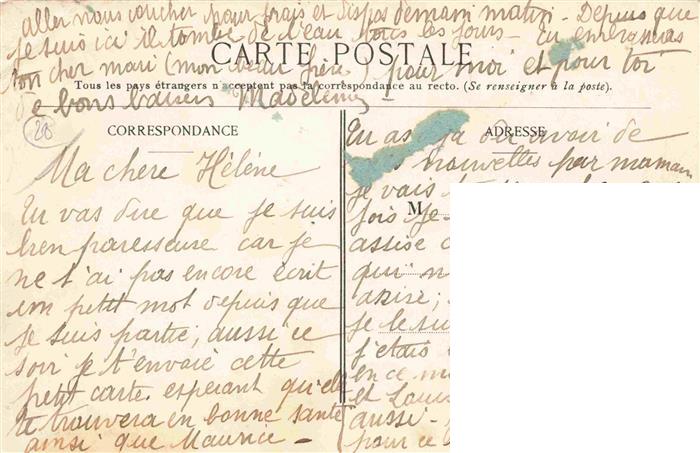 aller nous coucher pour frais et dispos demain matin - Depuis que
je suis ici il tombe de l'eau tous les jours - tu embrasseras
ton cher mari (mon beau frère) pour moi et pour toi
de bons baisers Madeleine
CARTE POSTALE
Tous les pays étrangers n'acceptent pas la correspondance au recto. (Se renseigner à la poste).
CORRESPONDANCE
Ma chère Hélène
Tu vas dire que je suis
bien paresseuse car je
ne t'ai pas encore écrit
un petit mot depuis que
je suis partie; aussi ce
soir je t'envoie cette
petit carte espérant qu'elle
te trouvera en bonne santé
ainsi que Maurice -
ADRESSE
Tu as dû avoir de
nouvelles par maman
je vais
M
fois je
assise
qui n
assise;
je le sui
j'étais
en ce m
et Loui
aussi
pour ce